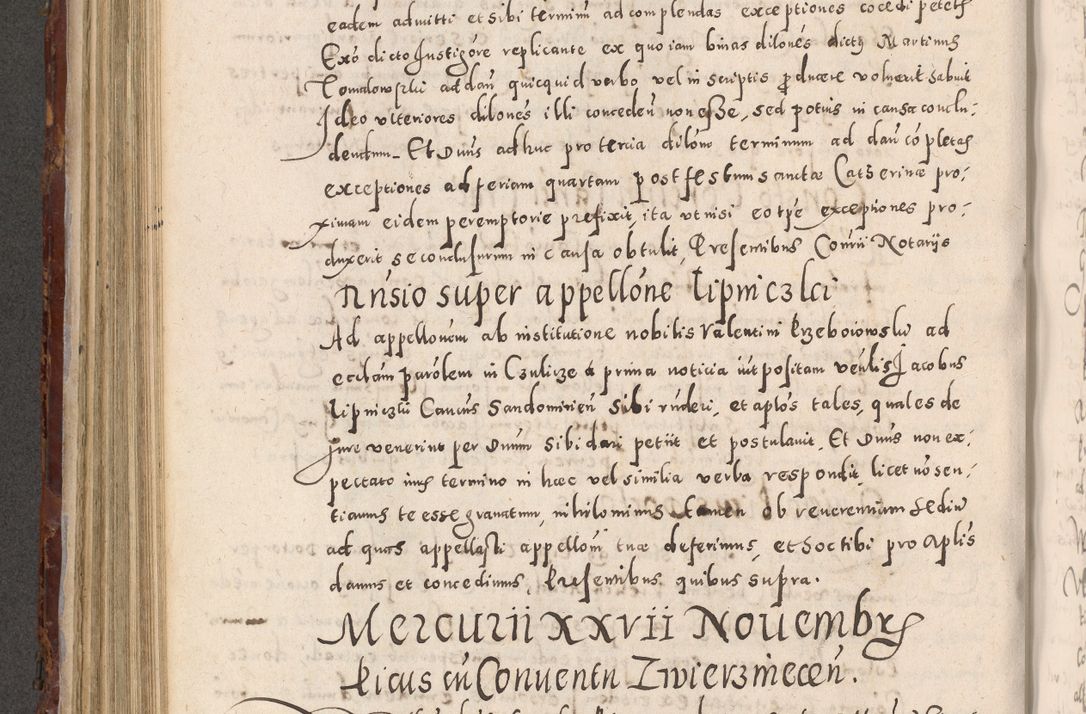 eadem admitti et sibi terminum ad complendas exceptiones cocedi petels
Exo dicto Instigore replicante ex quo iam binas dilones dictus Martinus
Tomdlowski ad dan quicquid verbo vel in scriptis producere voluerit habuit
Ideo vlteriores dilones illi conceden non esse, sed potius in causa conclu-
dendum. Et Dnus adhuc pro tercia dilone terminum ad dan cõpletas
exceptiones ad feriam quartam post festum sanctæ Catherinæ pro-
ximam eidem peremptorie prefixit, ita vt nisi eo tpe exceptiones pro-
duxerit se conclusurum in causa obtulit, Presentibus Comii Notarijs
Rnsio super appellone Lipniczki
Ad appellonem ab institutione nobilis Valentini Przeboiowski ad
ecclam parolem in Czulicze a prima noticia iut positam venlis Jacobus
Lipniczki Cancus Sandomirien sibi rnderi, et aplos tales, quales de
jure venerint per Dnum sibi dari petiit et postulauit. Et Dnus non ex-
pectato iuris termino in hæc vel similia verba respondit, licet nõ sen-
tiamus te esse grauatum, nihilominus tamen ob reuerentiam Sedium
ad quas appellasti appelloni tuæ deferimus, et hoc tibi pro aplis
damus et concedimus, Presentibus quibus supra.
Mercurii xxvii Nouembrs
Picus cũ Conuentu Zwierzinecen.